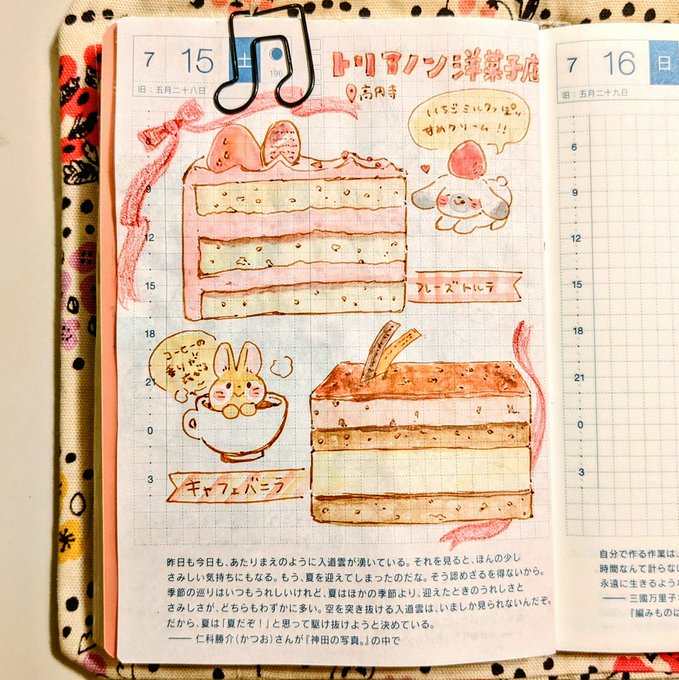 7 15 土 196
旧:五月二十八日
トリアノン洋菓子店
高円寺
いちごミルクっぽい
甘めクリーム!!
9
12
フレーズトルテ
15
18
コーヒーの
21
0
3
キャフェバニラ
昨日も今日も、あたりまえのように入道雲が湧いている。それを見ると、ほんの少し
さみしい気持ちにもなる。もう、夏を迎えてしまったのだな。そう認めざるを得ないから。
季節の巡りはいつもうれしいけれど、夏はほかの季節より、迎えたときのうれしさと
さみしさが、どちらもわずかに多い。空を突き抜ける入道雲は、いましか見られないんだぞ。
だから、夏は「夏だぞ!」と思って駆け抜けようと決めている。
── 仁科勝介(かつお)さんが『神田の写真。』の中で
7 16 日
旧:五月二十九日
6
9
12
15
18
21
0
3
自分で作る作業は、
時間なんて計らない
永遠に生きるような
── 三國万里子
『編みものは